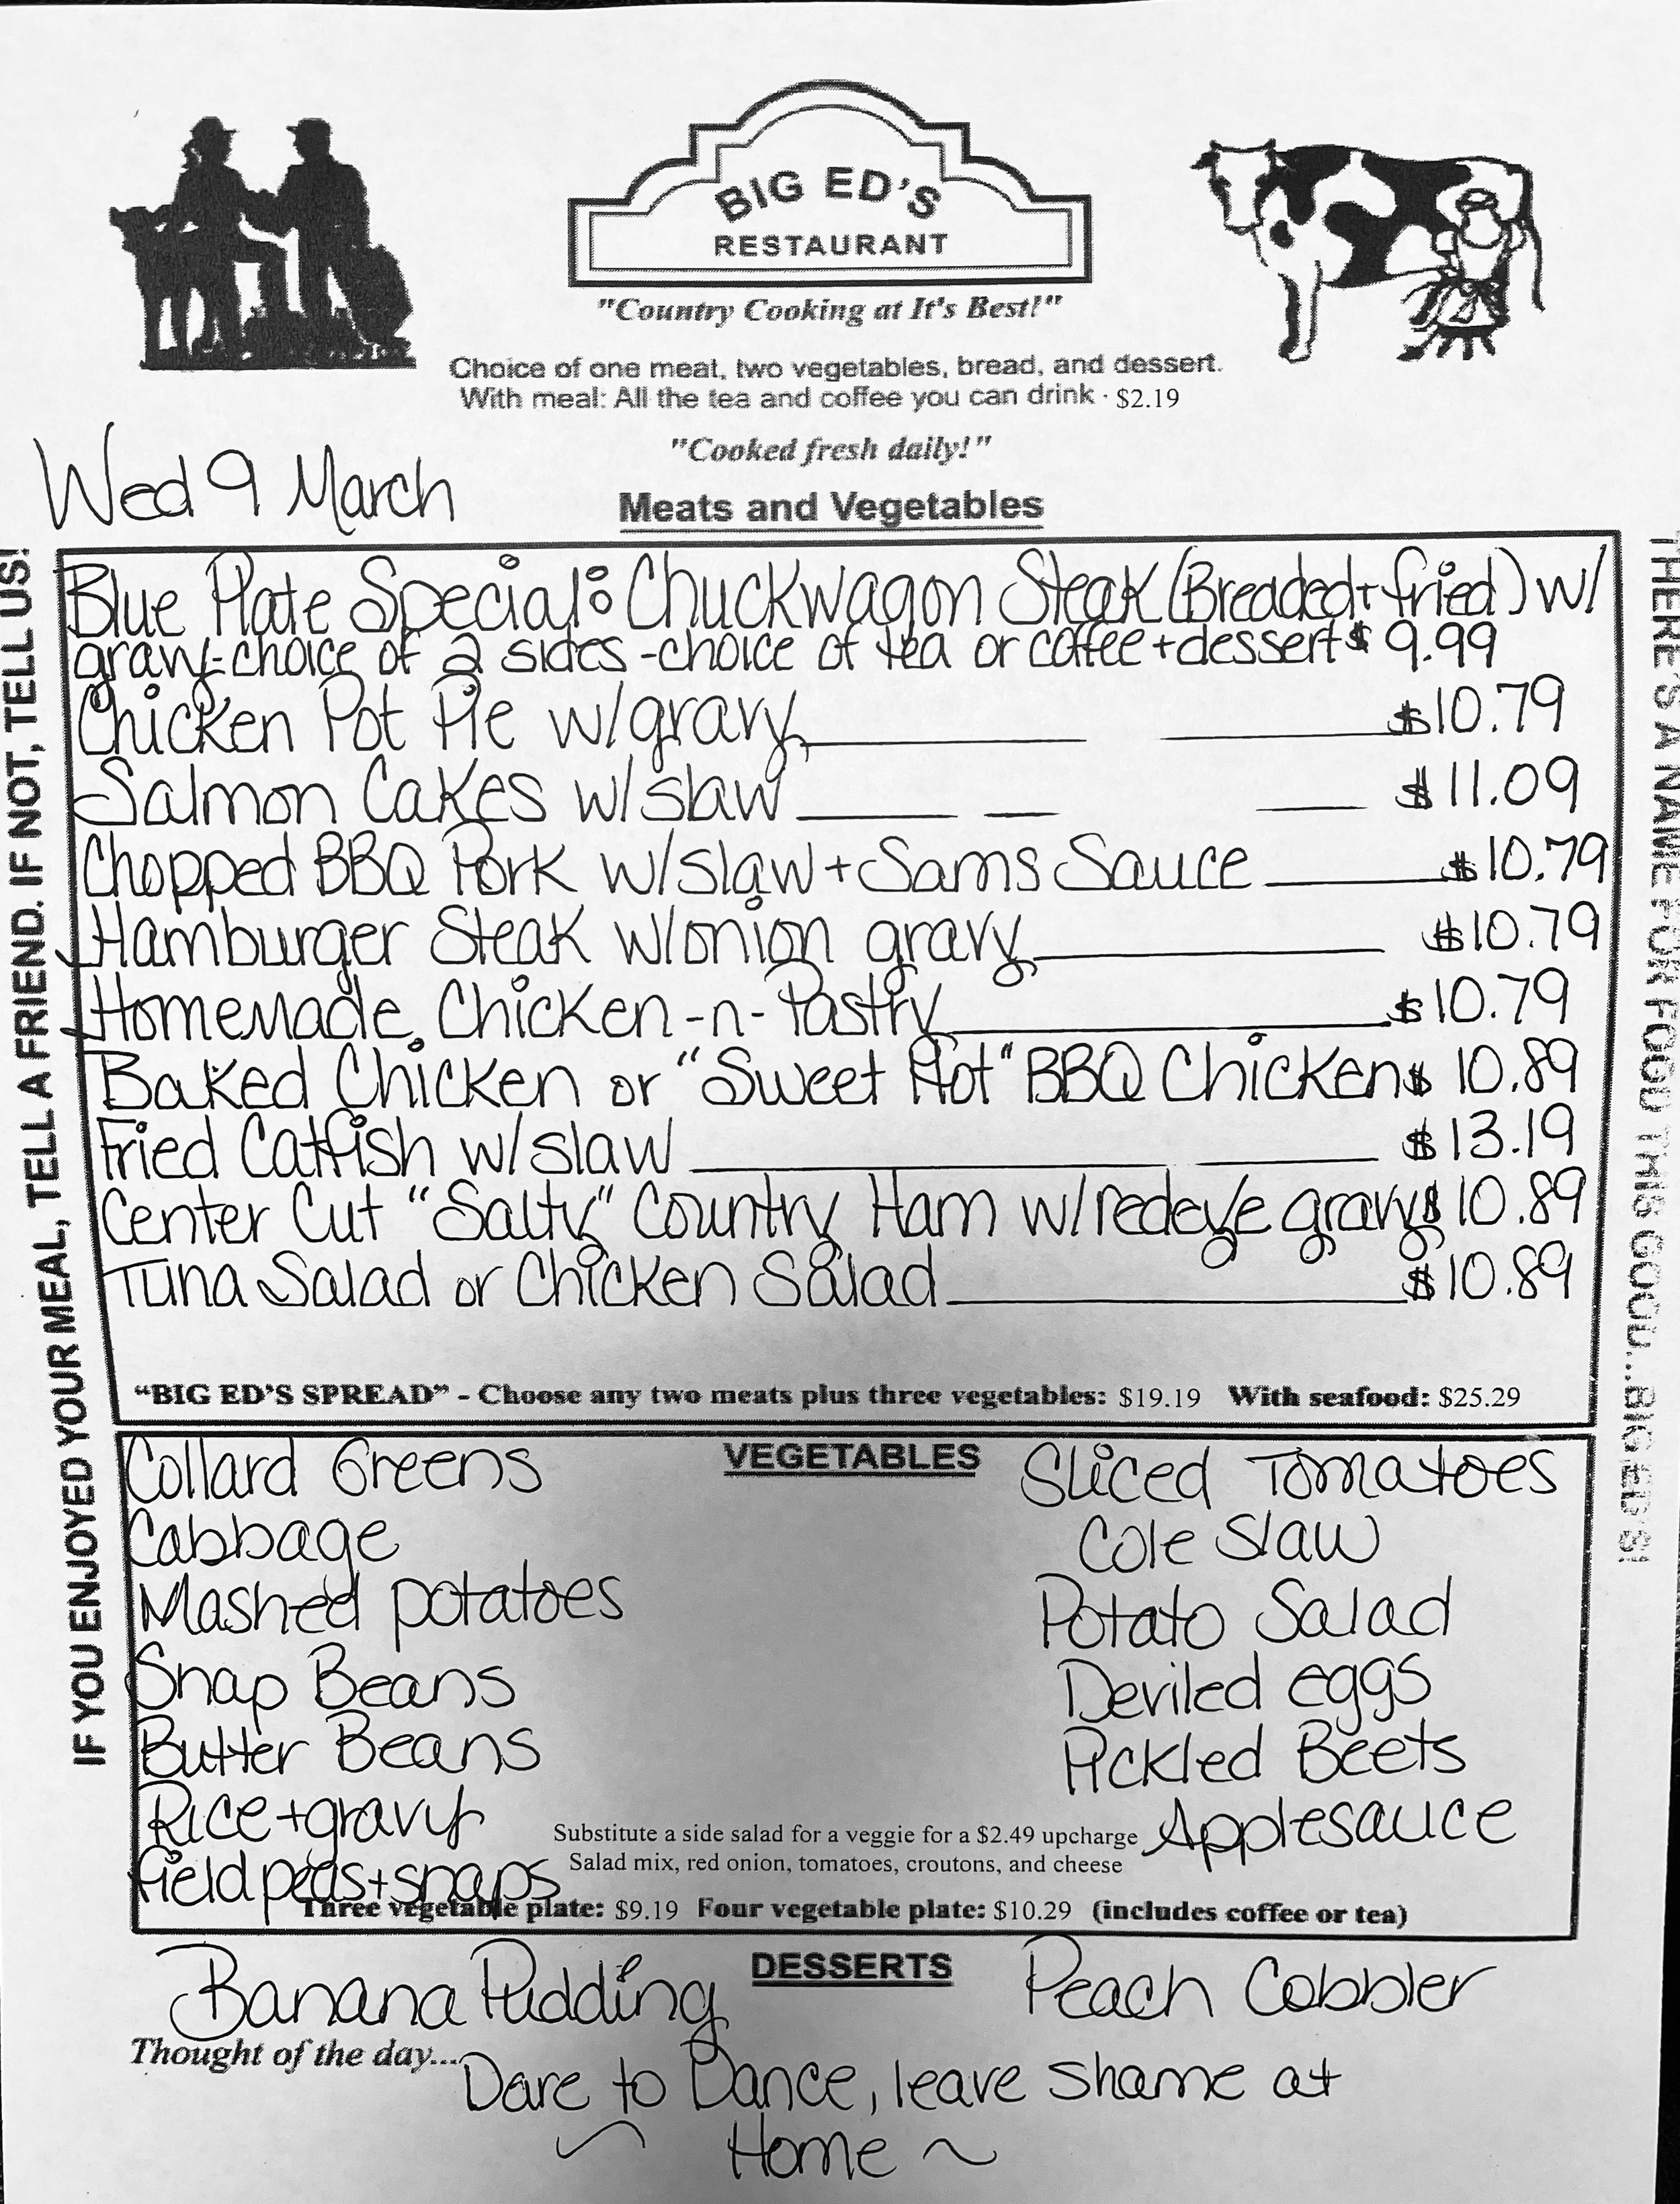 BIG ED'S
RESTAURANT
"Country Cooking at It's Best!"
Choice of one meat, two vegetables, bread, and dessert.
With meal: All the tea and coffee you can drink · $2.19
"Cooked fresh daily!"
Wed 9 March
Meats and Vegetables
IF YOU ENJOYED YOUR MEAL, TELL A FRIEND. IF NOT, TELL US!
THERE'S A NAME FOR FOOD THIS GOOD...BIG ED'S!
Blue Plate Special: Chuckwagon Steak (Breaded + fried) w/
gravy - choice of 2 sides - choice of tea or coffee + dessert $ 9.99
Chicken Pot Pie w/gravy $10.79
Salmon Cakes w/slaw $11.09
Chopped BBQ Pork w/slaw + Sams Sauce $10.79
Hamburger Steak w/onion gravy $10.79
Homemade Chicken -n- Pastry $10.79
Baked Chicken or "Sweet Hot" BBQ Chicken $ 10.89
Fried Catfish w/slaw $13.19
Center Cut "Salty" Country Ham w/redeye gravy $10.89
Tuna Salad or Chicken Salad $10.89
"BIG ED'S SPREAD" - Choose any two meats plus three vegetables: $19.19 With seafood: $25.29
VEGETABLES
Collard Greens
Cabbage
Mashed potatoes
Snap Beans
Butter Beans
Rice + gravy
field peas + snaps
Sliced Tomatoes
Cole Slaw
Potato Salad
Deviled eggs
Pickled Beets
Applesauce
Substitute a side salad for a veggie for a $2.49 upcharge
Salad mix, red onion, tomatoes, croutons, and cheese
Three vegetable plate: $9.19 Four vegetable plate: $10.29 (includes coffee or tea)
DESSERTS
Banana Pudding
Peach Cobbler
Thought of the day... Dare to Dance, leave shame at
~ Home ~